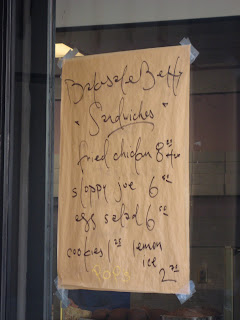 Bakesale Betty
"Sandwiches"
fried chicken 8
sloppy joe 6⁰⁰
egg salad 6⁰⁰
cookies 1²⁵ lemon
ice
2